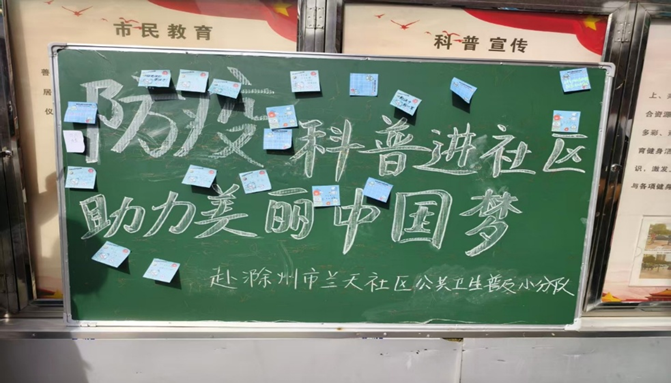 市民教育
科普宣传
防疫科普进社区
助力美丽中国梦
赴滁州市兰天社区公共卫生普及小分队